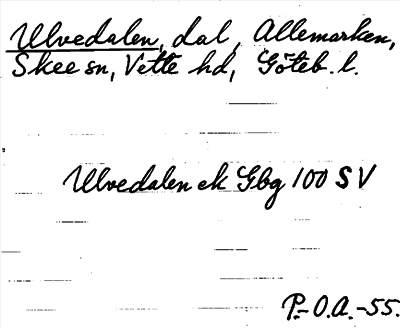 Ulvedalen, dal, Allemarken,
Skee sn, Vette hd, Göteb. l.
Ulvedalen ek Gbg 100 SV
P.-O.A.-55.